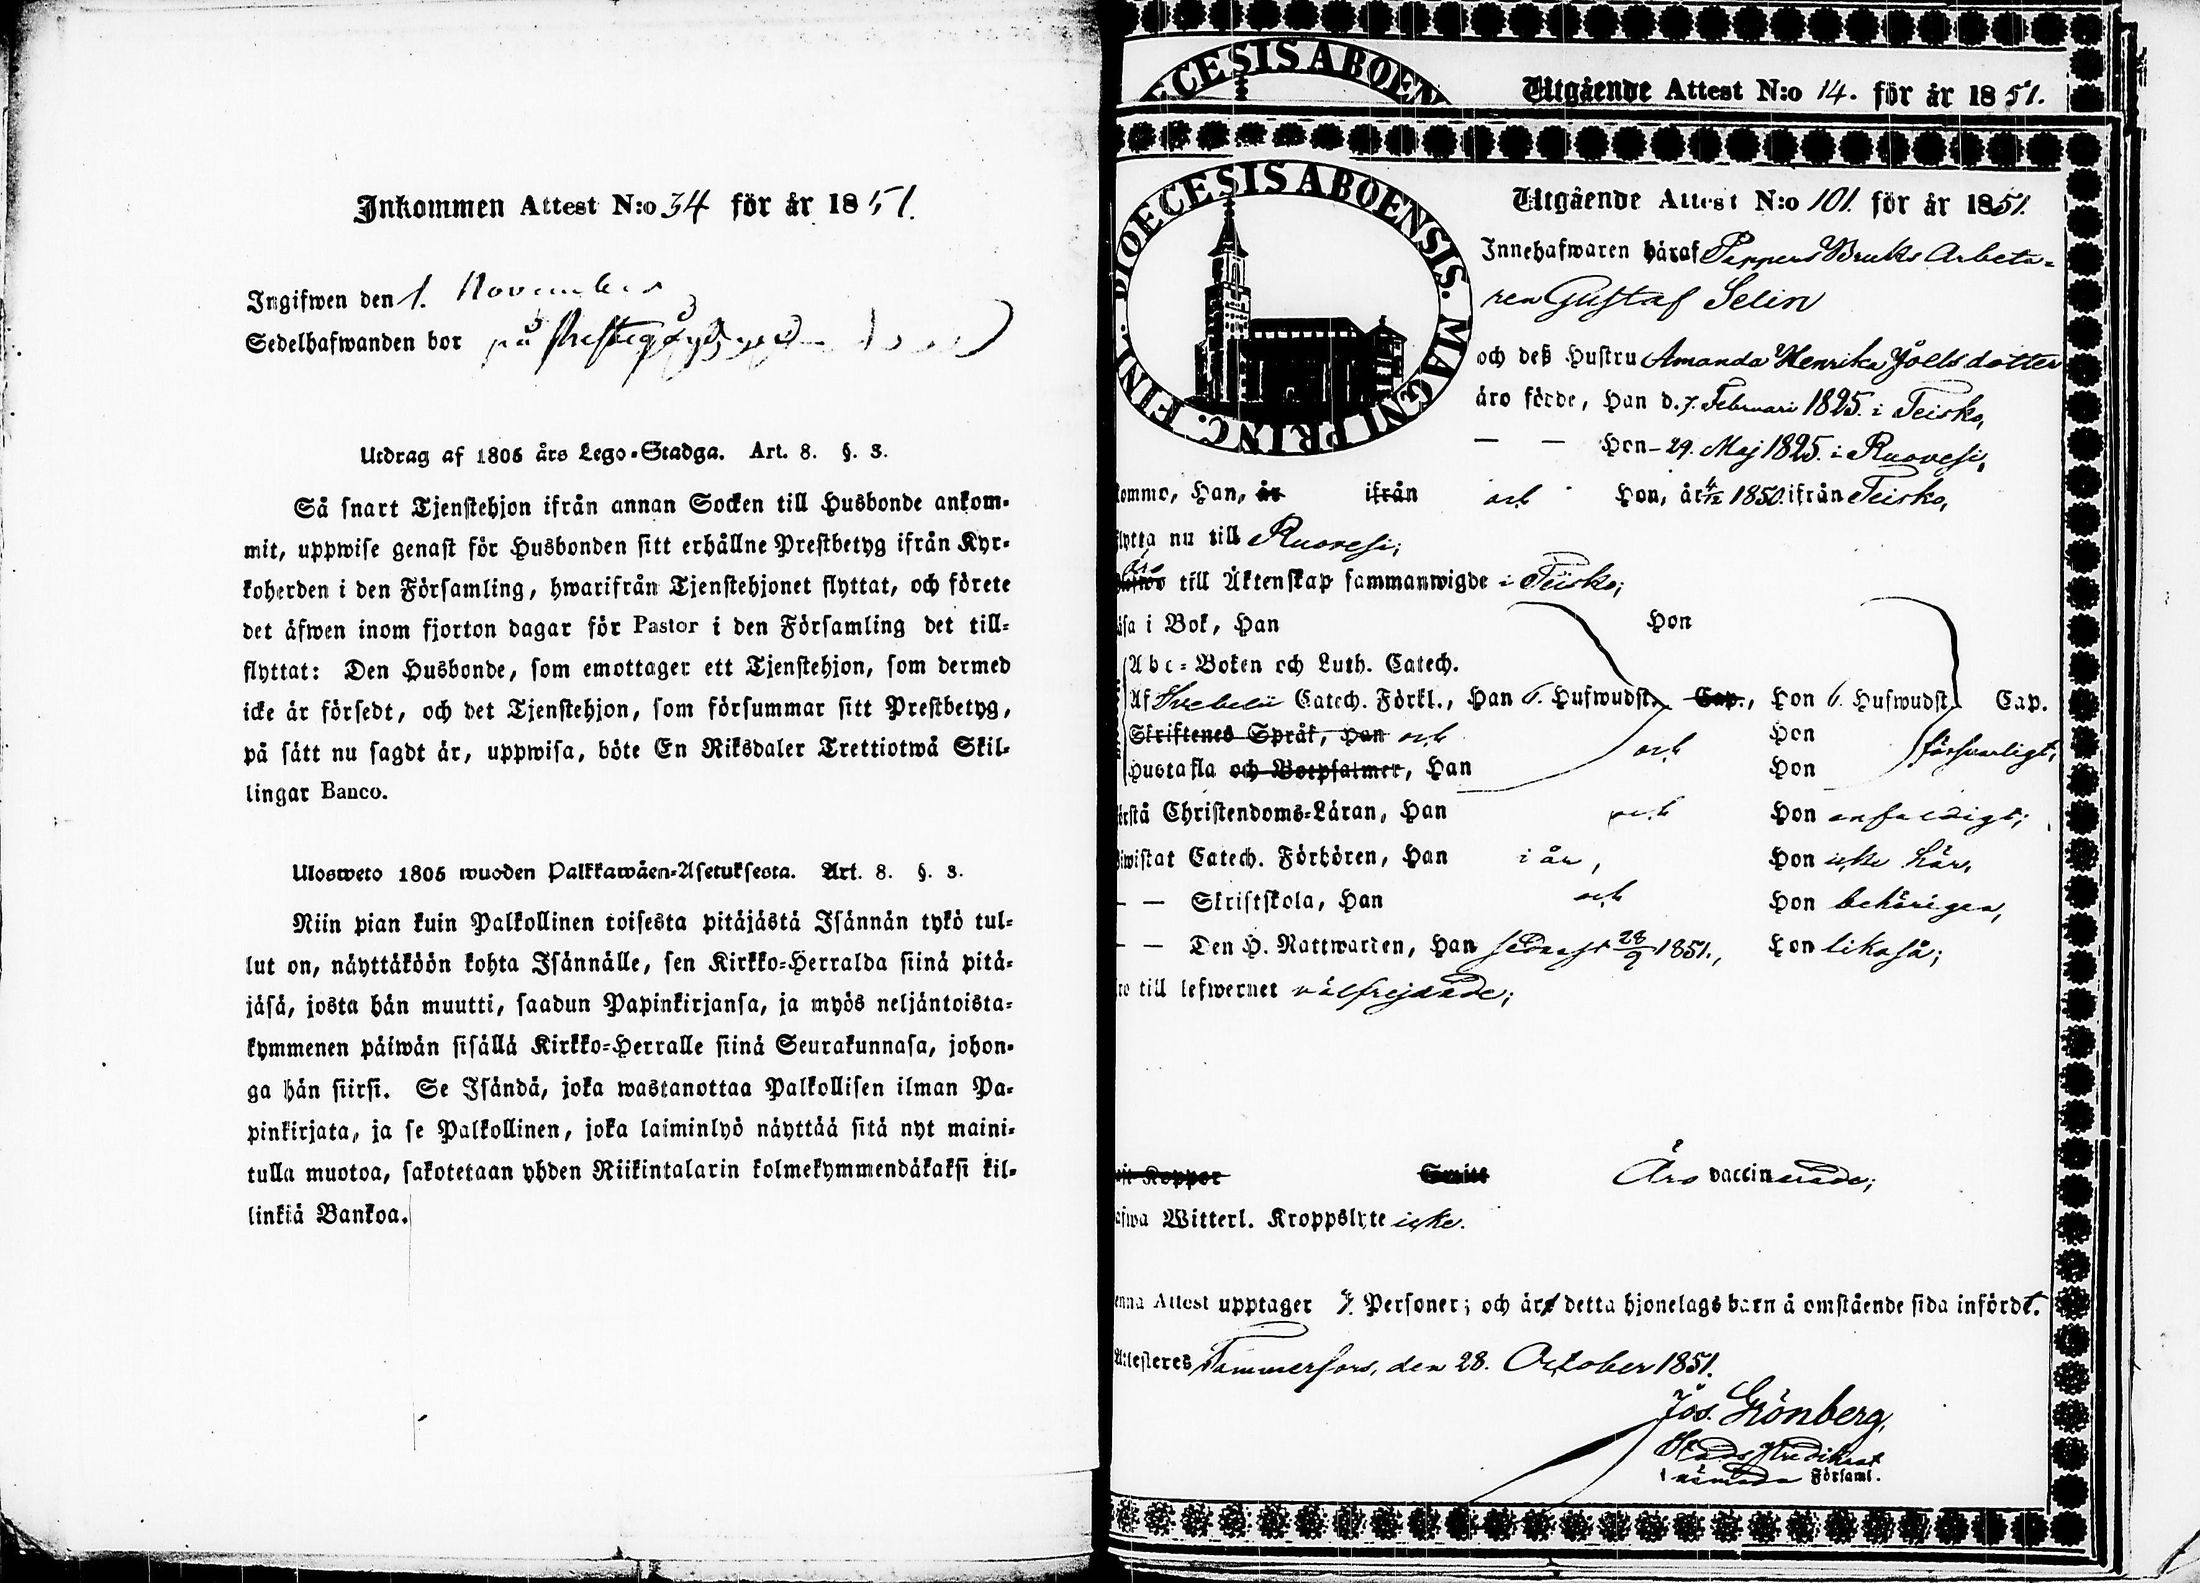 Inkommen Attest N:o 34 för år 1851.
Ingifwen den 1. November
Sedelhafwanden bor på
Utdrag af 1805 års Lego-Stadga. Art. 8. §. 3.
Så snart Tjenstehjon ifrån annan Socken till Husbonde ankom-
mit, uppwise genast för Husbonden sitt erhållne Prestbetyg ifrån Kyr-
koherden i den Församling, hwarifrån Tjenstehjonet flyttat, och förete
det äfwen inom fjorton dagar för Pastor i den Församling det till-
flyttat: Den Husbonde, som emottager ett Tjenstehjon, som dermed
icke är försedt, och det Tjenstehjon, som försummar sitt Prestbetyg,
på sätt nu sagdt är, uppwisa, böte En Riksdaler Trettiotwå Skil-
lingar Banco.
Ulosweto 1805 wuoden Palkkawäen-Asetuksesta. Art. 8. §. 3.
Niin pian kuin Palkollinen toisesta pitäjästä Isännän tykö tul-
lut on, näyttäköön kohta Isännälle, sen Kirkko-Herralda siinä pitä-
jäsä, josta hän muutti, saadun Papinkirjansa, ja myös neljäntoista-
kymmenen päiwän sisällä Kirkko-Herralle siinä Seurakunnasa, johon-
ga hän siirsi. Se Isändä, joka wastanottaa Palkollisen ilman Pa-
pinkirjata, ja se Palkollinen, joka laiminlyö näyttää sitä nyt maini-
tulla muotoa, sakotetaan yhden Riikintalarin kolmekymmendäkaksi kil-
linkiä Bankoa.
CESIS ABOEN
Utgående Attest N:o 14. för år 1851.
DIOECESIS ABOENSIS. MAGNI PRINC. FINL.
Utgående Attest N:o 101. för år 1851.
Innehafwaren häraf Pappers Bruks Arbeta-
ren Gustaf Selin
och deß Hustru Amanda Henrika Joelsdotter
äro födde, Han d. 7. Februari 1825. i Teisko,
— — Hon – 29. Maj 1825. i Ruovesi,
komme, Han, är ifrån och Hon, år 4/12 1850. ifrån Teisko,
flytta nu till Ruovesi;
äro till Äktenskap sammanwigde i Teisko;
läsa i Bok, Han Hon
Abc-Boken och Luth. Catech.
Af Svebelii Catech. Förkl., Han 6. Hufwudst. Cap., Hon 6. Hufwudst. Cap.
Skriftenes Språk, Han och Hon
Hustafla och Botpsalmer, Han och Hon försvarligt;
förstå Christendoms-Läran, Han och Hon enfaldigt;
biwistat Catech. Förhören, Han i år, Hon icke här,
— — Skriftskola, Han och Hon behörigen,
— — Den H. Nattwarden, Han sednast 28/9 1851., Hon likaså;
äro till lefwernet välfrejdade;
haft Koppor Smitt Äro vaccinerade;
hafwa Witterl. Kroppslyte icke.
Denna Attest upptager Personer; och är detta hjonelags barn å omstående sida infördt.
Attesteres Tammerfors, den 28. October 1851.
Jos. Grönberg,
Stads Predikant
i nämnda Församl.